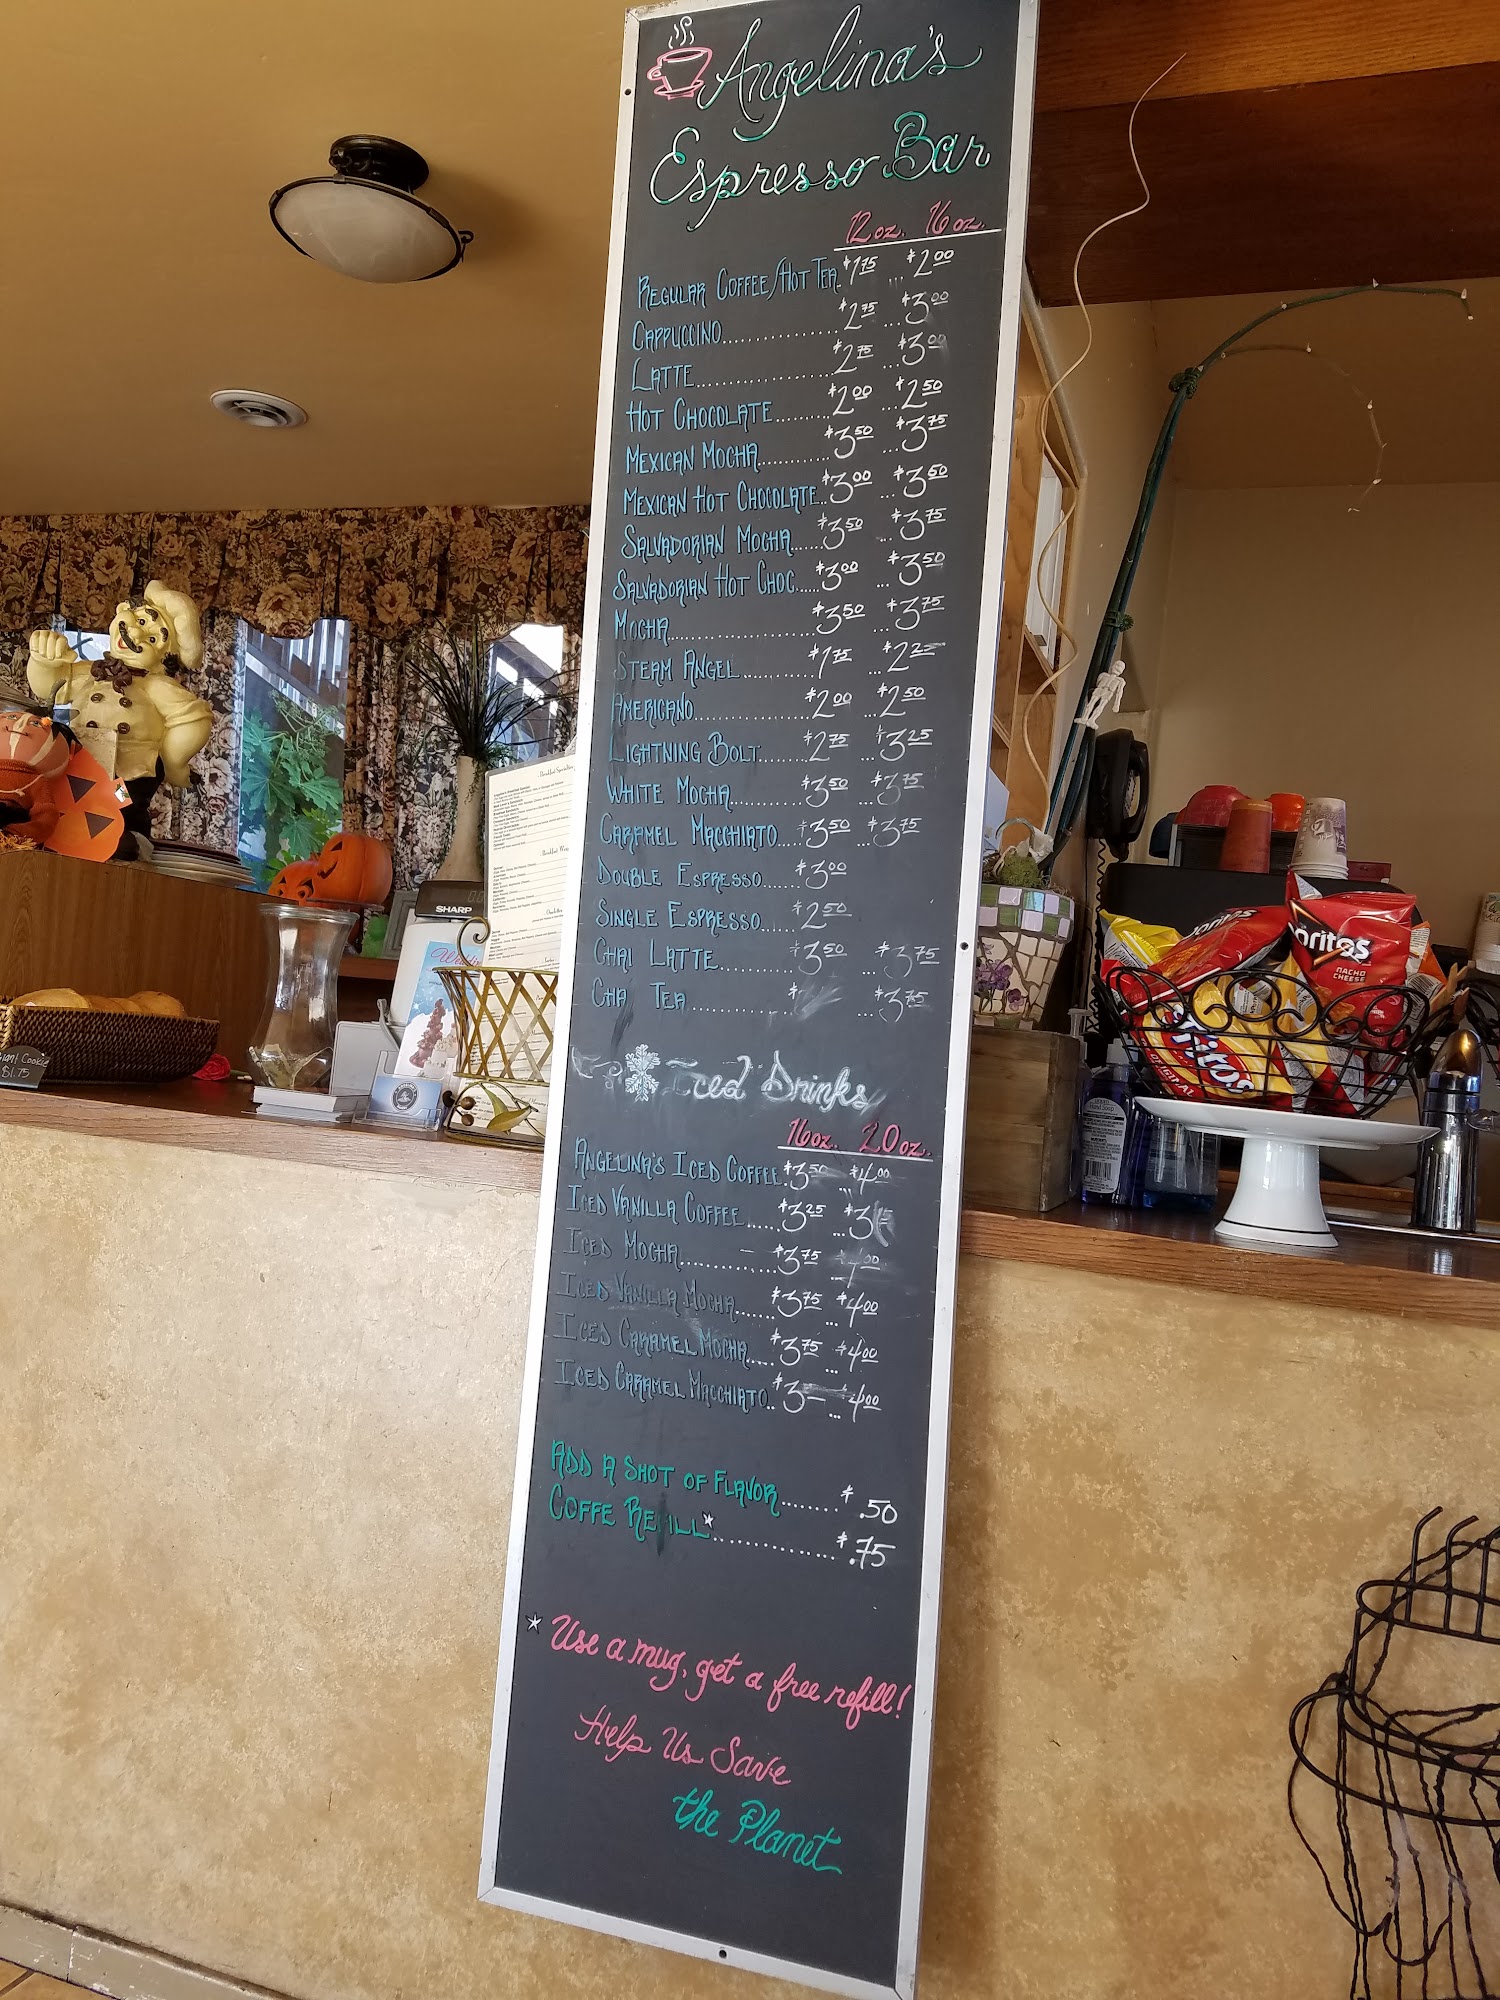 Angelina's
Espresso Bar
12 oz. 16 oz.
REGULAR COFFEE/HOT TEA. $1.75 ... $2.00
CAPPUCCINO................$2.75 ...$3.00
LATTE...................$2.75 ...$3.00
HOT CHOCOLATE........$2.00 ...$2.50
MEXICAN MOCHA...........$3.50 ...$3.75
MEXICAN HOT CHOCOLATE..$3.00 ...$3.50
SALVADORIAN MOCHA......$3.50 ...$3.75
SALVADORIAN HOT CHOC.....$3.00 ...$3.50
MOCHA.....................$3.50 ...$3.75
STEAM ANGEL..........$1.75 ...$2.25
AMERICANO................$2.00 ...$2.50
LIGHTNING BOLT......$2.75 ...$3.25
WHITE MOCHA...........$3.50 ...$3.75
CARAMEL MACCHIATO...$3.50 ...$3.75
DOUBLE ESPRESSO......$3.00
SINGLE ESPRESSO.....$2.50
CHAI LATTE...........$3.50 ...$3.75
CHA TEA............... ...$3.75
Iced Drinks
16oz. 20oz.
ANGELINA'S ICED COFFEE.$3.50 ...$4.00
ICED VANILLA COFFEE......$3.25 ...$3.75
ICED MOCHA..............$3.75 ...$4.00
ICED VANILLA MOCHA.......$3.75 ...$4.00
ICED CARAMEL MOCHA.....$3.75 ...$4.00
ICED CARAMEL MACCHIATO..$3 ...$4.00
ADD A SHOT OF FLAVOR........$.50
COFFE REFILL*..............$.75
* Use a mug, get a free refill!
Help Us Save
the Planet
SHARP
Giant Cookie
$1.75
Doritos
Doritos
NACHO
CHEESE
Fritos
ORIGINAL
Hand Soap